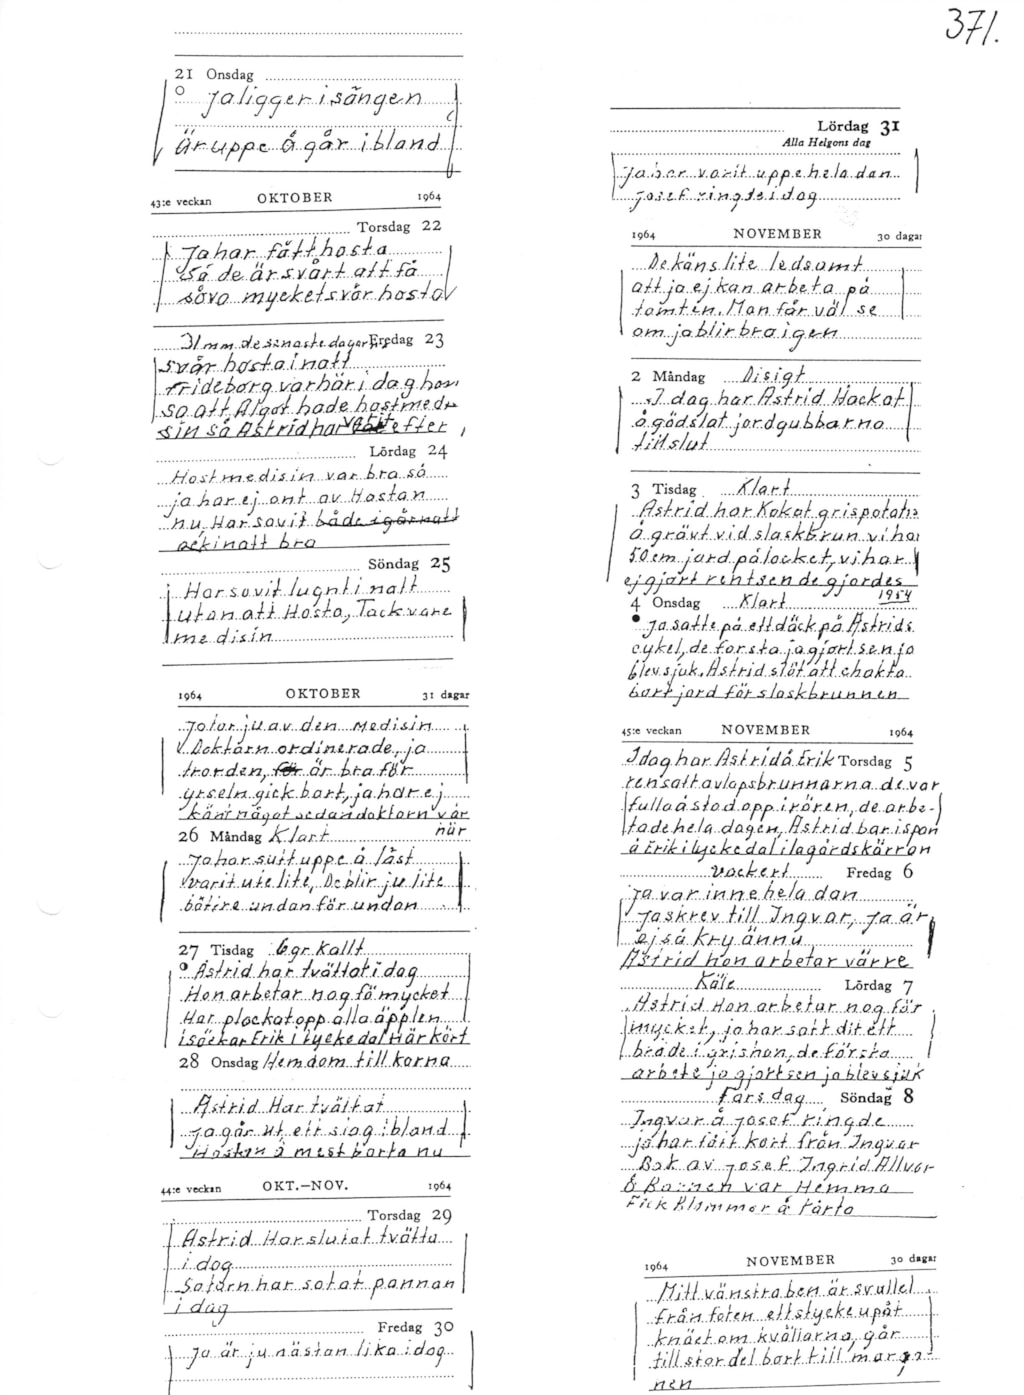 371.
21 Onsdag
ja ligger i sängen
är uppe å går ibland
43:e veckan OKTOBER 1964
Torsdag 22
Ja har fått hosta
så de är svårt att få
sova mycket svår hosta
31 mm de senaste dagar Fredag 23
svår hosta i natt
Frideborg var här i dag hon
sa att Algot hade hostmed
sin så Astrid har varit efter
Lördag 24
Hostmedisin var bra så
ja har ej ont av Hostan
nu. Har sovit både igårnatt
ock i natt bra
Söndag 25
Har sovit lugnt i natt
utan att Hosta, Tack vare
medisin
1964 OKTOBER 31 dagar
Ja tar ju av den Medisin
Doktorn ordinerade, ja
tror den, är bra för
yrseln gick bort, ja har ej
känt något sedan doktorn var
här
26 Måndag Klart
Ja har sutt uppe å läst
varit ute lite, De blir ju lite
bättre undan för undan
27 Tisdag 6 gr Kallt
Astrid har tvättat i dag
Hon arbetar nog få mycket
Har plockat opp alla äpplen
i säckar Erik i Lycke dal Här kört
28 Onsdag Hem dom till korna
Astrid Har tvättat
ja går ut ett slag ibland
Hostan å mest borta nu
44:e veckan OKT.—NOV. 1964
Torsdag 29
Astrid Har slutat tvätta
i dag
Sotarn har sotat pannan
i dag
Fredag 30
Ja är ju nästan lika i dag
Lördag 31
Alla Helgons dag
Ja har varit uppe hela dan
josef ringde i dag
1964 NOVEMBER 30 dagar
De käns lite ledsamt
att ja ej kan arbeta på
tomten. Man får väl se
om ja blir bra igen
2 Måndag Disigt
I dag har Astrid Hackat
å gödslat jordgubbarna
till slut
3 Tisdag Klart
Astrid har Kokat grispotatis
å grävt vid slaskbrun vi har
50 cm jord på locket, vi har
ej gjort rent sen de gjordes
1954
4 Onsdag Klart
Ja satte på ett däck på Astrids
cykel, de forsta ja gjort sen ja
blev sjuk. Astrid slöt att chakta
bort jord för slaskbrunnen
45:e veckan NOVEMBER 1964
I dag har Astrid å Erik Torsdag 5
rensatt avlopsbrunnarna de var
fulla å stod opp i rören, de arbe-
tade hela dagen, Astrid bar i spon
å Erik i lycke dal i lagårdskärran
Vackert Fredag 6
ja var inne hela dan
Ja skrev till Ingvar, Ja är
ej så kry ännu
Astrid hon arbetar värre
Kale Lördag 7
Astrid Hon arbetar nog för
mycket, ja har satt dit ett
bräde i grishon, de första
arbete ja gjort sen ja blev sjuk
Fars dag Söndag 8
Ingvar å josef ringde
ja har fått kort från Ingvar
Bok av josef. Ingrid Allvar
å Karinen var Hemma
Fick Blommor å tårta
1964 NOVEMBER 30 dagar
Mitt vänstra ben är svullet
från foten ett stycke upåt
knäet om kvällarna, går
till stor del bort till morgo-
nen